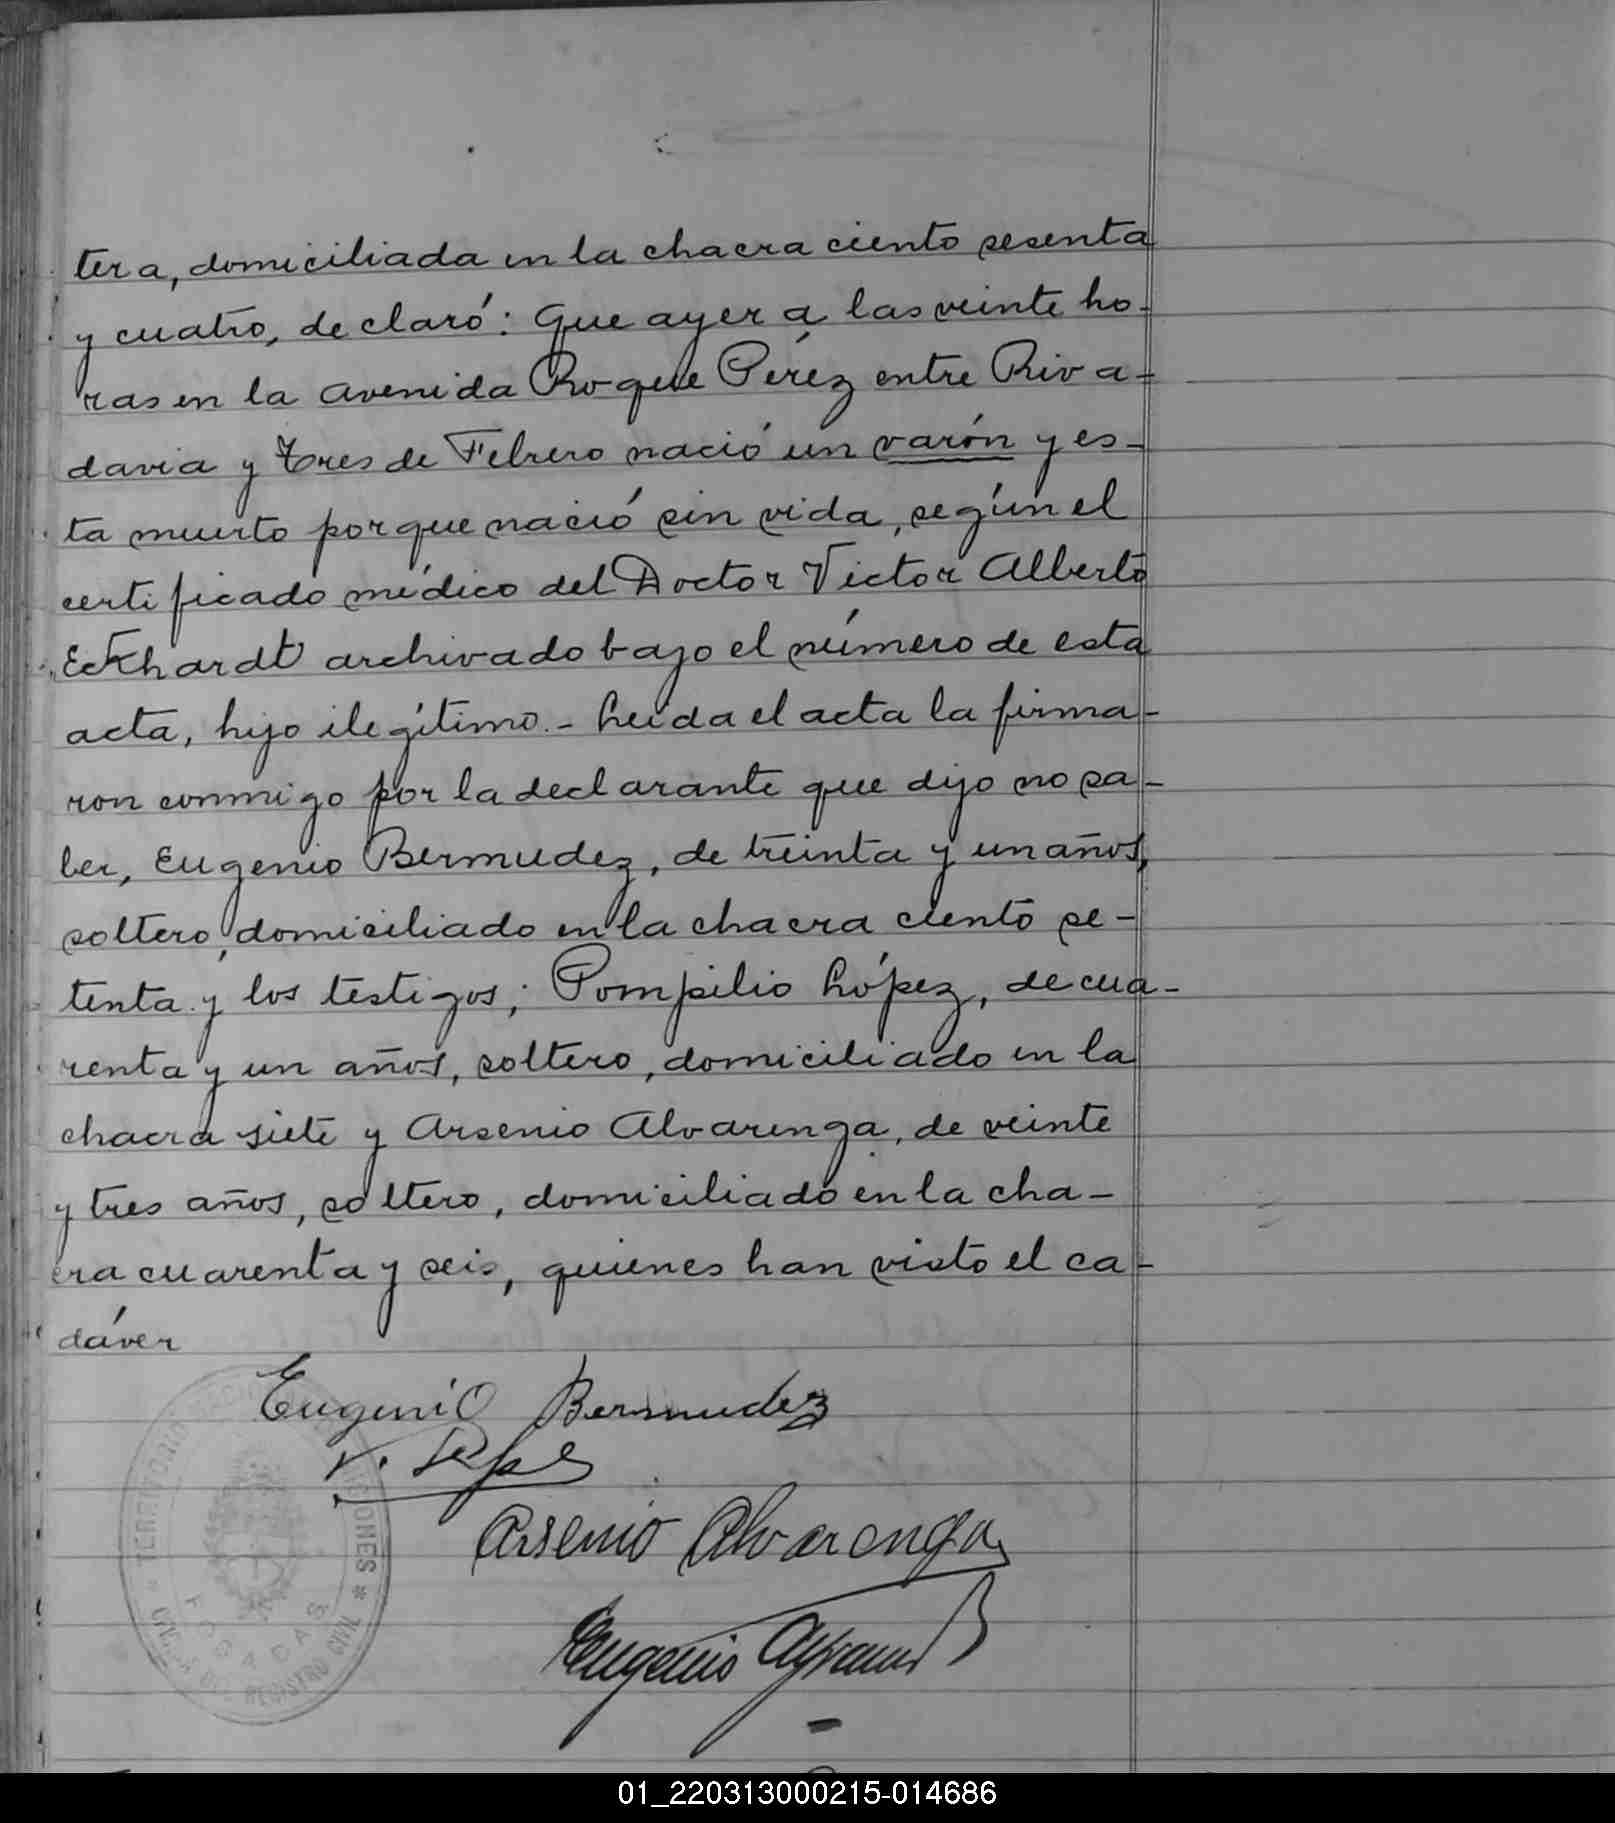 tera, domiciliada en la chacra ciento sesenta
y cuatro, declaró: Que ayer a las veinte ho-
ras en la avenida Roque Pérez entre Riva-
davia y Tres de Febrero nació un varón y es-
ta muerto porque nació sin vida, según el
certificado médico del Doctor Victor Alberto
Eckhardt archivado bajo el número de esta
acta, hijo ilegítimo.- Leida el acta la firma-
ron conmigo por la declarante que dijo no sa-
ber, Eugenio Bermudez, de treinta y un años,
soltero, domiciliado en la chacra ciento se-
tenta y los testigos; Pompilio López, de cua-
renta y un años, soltero, domiciliado en la
chacra siete y Arsenio Alvarenga, de veinte
y tres años, soltero, domiciliado en la cha-
cra cuarenta y seis, quienes han visto el ca-
dáver
Eugenio Bermudez
Arsenio Alvarenga
Eugenio
TERRITORIO NACIONAL MISIONES
REGISTRO CIVIL
POSADAS
01_220313000215-014686